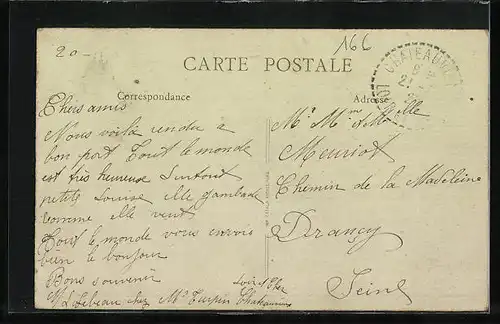 20-
166
CARTE POSTALE
Correspondance
Adresse
CHATEAUVI
LOI
Chers amis
Nous voila rendu a
bon port Tout le monde
est très heureuse Surtout
petite Louise elle gambade
comme elle veut
Tout le monde vous envois
bien le bonjour
Bons souvenir
Loir et Cher
M L Lebeau chez Mr Turpin Chateauvieux
Mr Mme et Melle
Meuriot
Chemin de la Madeleine
Drançy
Seine